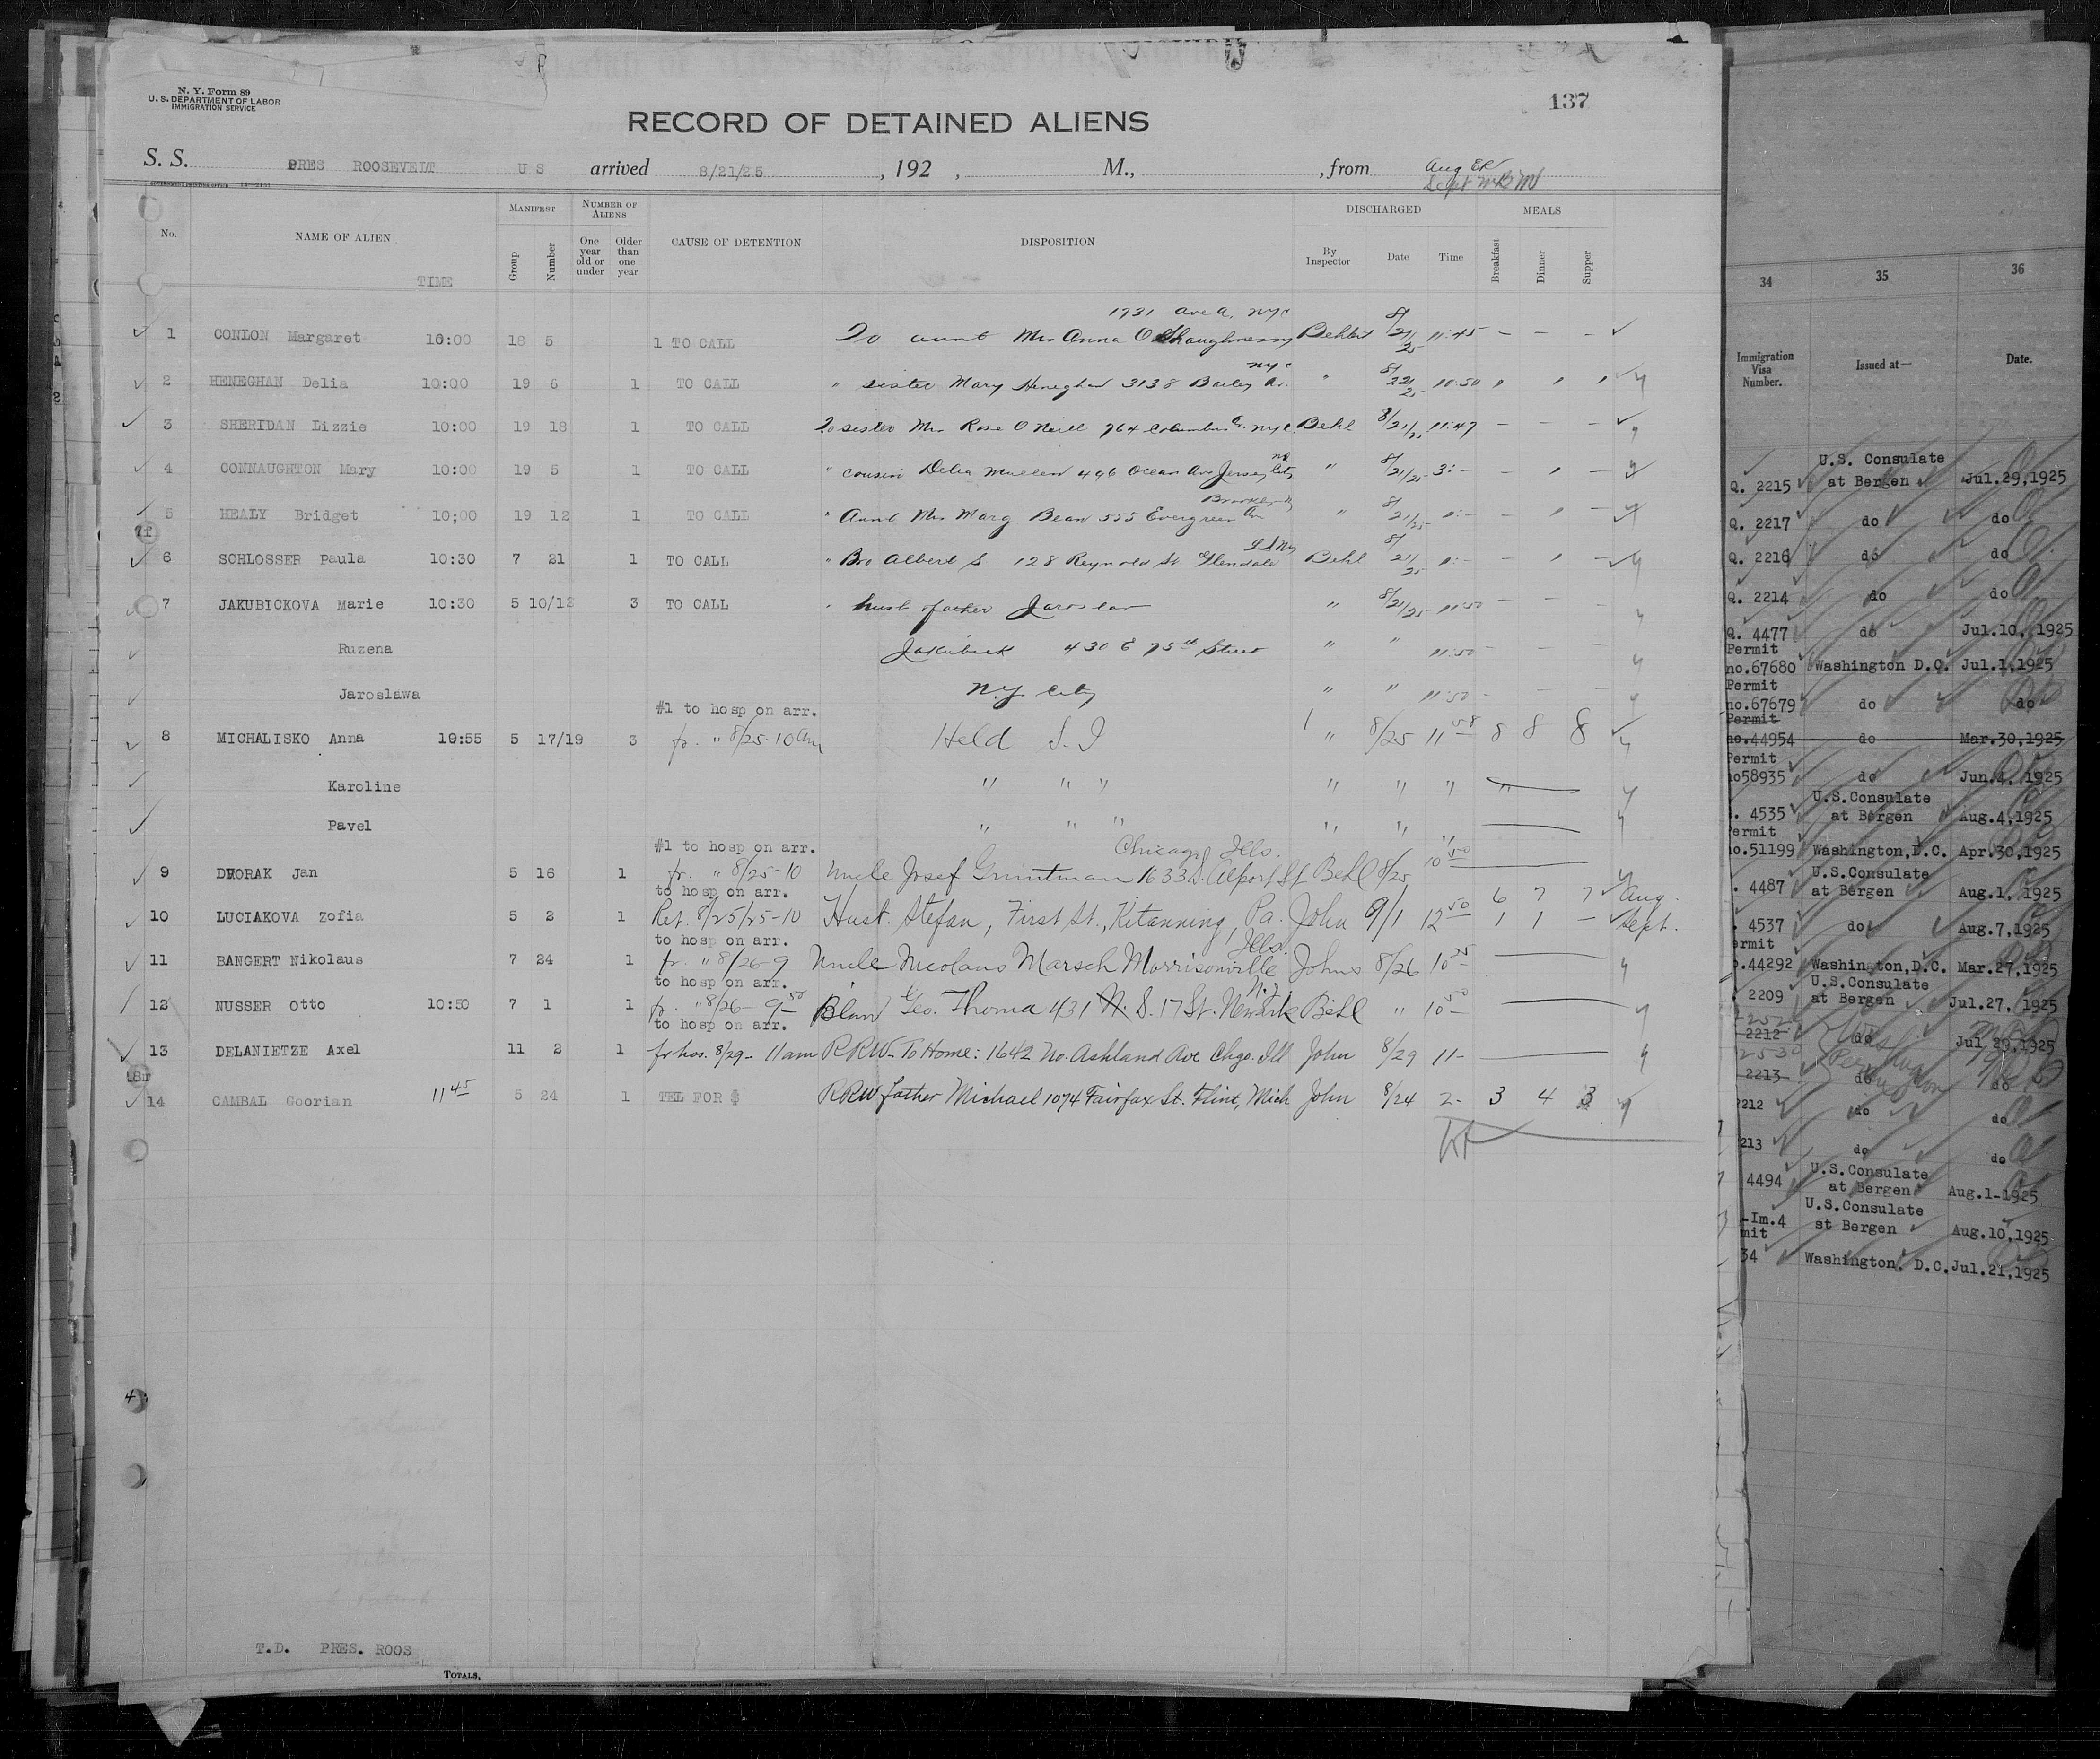 N. Y. Form 89
U. S. DEPARTMENT OF LABOR
IMMIGRATION SERVICE
137
RECORD OF DETAINED ALIENS
S. S. PRES ROOSEVELT U S arrived 8/21/25 , 192 , M., , from Aug
Sept
No. NAME OF ALIEN TIME MANIFEST Group Number NUMBER OF ALIENS One year old or under Older than one year CAUSE OF DETENTION DISPOSITION DISCHARGED By Inspector Date Time MEALS Breakfast Dinner Supper
1731 Ave A, NYC
1 CONLON Margaret 10:00 18 5 1 TO CALL To aunt Mrs Anna O Shaughnessy 8/21/25 11:45 - - -
NYC
2 HENEGHAN Delia 10:00 19 6 1 TO CALL " sister Mary Heneghan 3138 Bailey Av. " 8/22/25 10:50
3 SHERIDAN Lizzie 10:00 19 18 1 TO CALL To sister Mrs Rose O Neill 964 Columbus Av. NYC. Behl 8/21/25 11:47 - - -
4 CONNAUGHTON Mary 10:00 19 5 1 TO CALL " cousin Delia Mullen 496 Ocean Ave Jersey City NJ " 8/21/25 3:-
Brooklyn
5 HEALY Bridget 10;00 19 12 1 TO CALL " Aunt Mrs Marg Bean 555 Evergreen Av " 8/21/25
6 SCHLOSSER Paula 10:30 7 21 1 TO CALL " Bro Albert S 128 Reynold St Glendale L I NY Behl 8/21/25
7 JAKUBICKOVA Marie 10:30 5 10/12 3 TO CALL " husb father Jaroslav " 8/21/25 11:50 - - -
Ruzena Jakubick 430 E 75th Street " " 11:50 - - -
Jaroslawa N.Y. City " " 11:50 - - -
#1 to hosp on arr.
8 MICHALISKO Anna 10:55 5 17/19 3 fr. " 8/25-10 am Held S. I " 8/25 11 58 8 8 8
Karoline " " " " " " "
Pavel " " " " "
#1 to hosp on arr. Chicago, Ills.
9 DVORAK Jan 5 16 1 fr. " 8/25-10 Uncle Josef Gruntman 1633 S. Alport St Behl 8/25 10 50
to hosp on arr. 6 7 7 Aug.
10 LUCIAKOVA Zofia 5 2 1 Ret. 8/25/25-10 Husb. Stefan, First St., Kitanning, Pa. John 9/1 12 50 1 1 - Sept.
to hosp on arr. Ills.
11 BANGERT Nikolaus 7 24 1 fr. " 8/26-9 Uncle Nicolaus Marsch Morrisonville Johns 8/26 10 25
to hosp on arr. N.J.
12 NUSSER Otto 10:50 7 1 1 fr. " 8/26- 9 50 Geo. Thoma 431 S. 17 St. Newark Behl " 10 50
to hosp on arr.
13 DELANIETZE Axel 11 2 1 fr hos. 8/29- 11 am RRW- To Home: 1642 No. Ashland Ave Chgo. Ill John 8/29 11-
14 CAMBAL Goorian 11 45 5 24 1 TEL FOR $ RRW father Michael 1074 Fairfax St. Flint, Mich John 8/24 2- 3 4 3
T.D. PRES. ROOS
TOTALS,
34 35 36
Immigration Visa Number. Issued at— Date.
Q. 2215 U.S. Consulate at Bergen Jul.29,1925
Q. 2217 do do
Q. 2216 do do
Q. 2214 do do
Q. 4477 do Jul.10, 1925
Permit
no.67680 Washington D.C. Jul.1,1925
Permit
no.67679 do do
Permit
no.44954 do Mar.30,1925
Permit
no58935 do Jun.4, 1925
4535 U.S.Consulate at Bergen Aug.4,1925
ermit
no.51199 Washington,D.C. Apr.30,1925
4487 U.S.Consulate at Bergen Aug.1, 1925
4537 do Aug.7,1925
ermit
.44292 Washington,D.C. Mar.27,1925
2209 U.S.Consulate at Bergen Jul.27, 1925
2212 do Jul 29,1925
2530
2213 do do
2212 do do
213 do do
4494 U.S.Consulate at Bergen Aug.1-1925
-Im.4 U.S.Consulate
mit st Bergen Aug.10,1925
34 Washington. D.C. Jul.21,1925